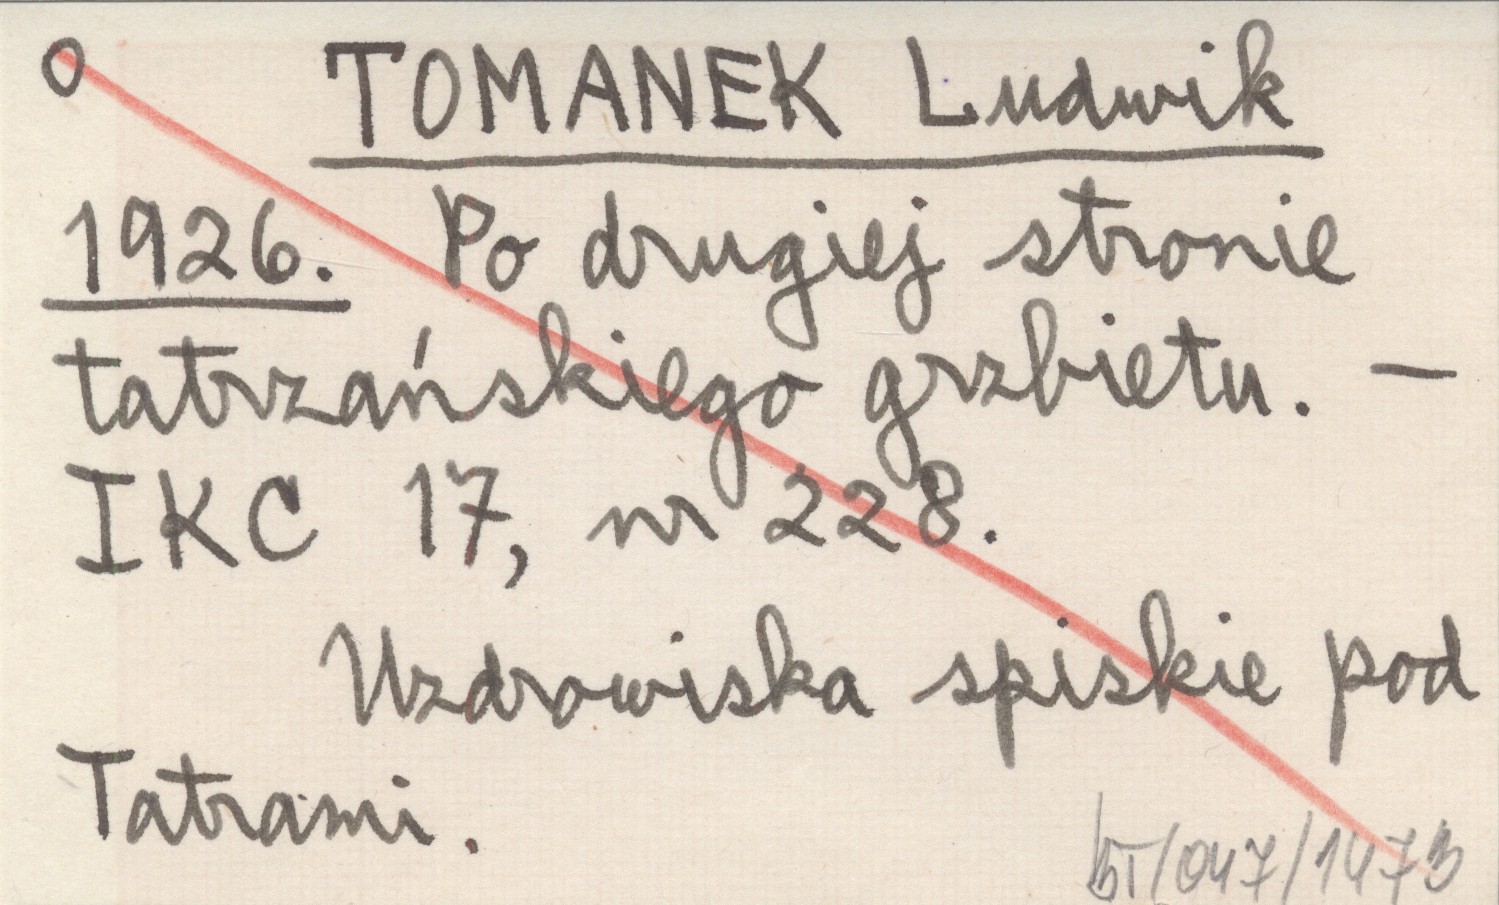 O TOMANEK Ludwik
1926. Po drugiej stronie
tatrzańskiego grzbietu. —
IKC 17, nr 228.
Uzdrowiska spiskie pod
Tatrami.
BT/047/1473